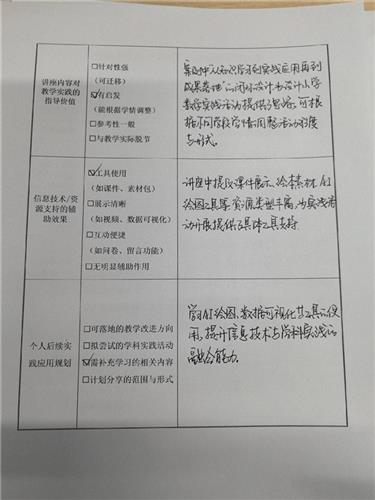 讲座内容对
教学实践的
指导价值
□针对性强
(可迁移)
☑有启发
(能根据学情调整)
□参考性一般
□与教学实际脱节
知识学习到实践应用再到
成果落地"的闭环设计为设计小学
数学实践活动提供了思路,可根
据不同学段学情调整活动难度
与形式。
信息技术/资
源支持的辅
助效果
☑工具使用
(如课件、素材包)
□展示清晰
(如视频、数据可视化)
□互动便捷
(如问卷、留言功能)
□无明显辅助作用
讲座中提及课件展示、绘本素材、AI
绘图工具等资源类型丰富,为实践活
动开展提供具体工具支持。
个人后续实
践应用规划
□可落地的教学改进方向
□拟尝试的学科实践活动
☑需补充学习的相关内容
□计划分享的范围与形式
学习AI绘图、数据可视化等工具的使
用,提升信息技术与学科实践的
融合能力。